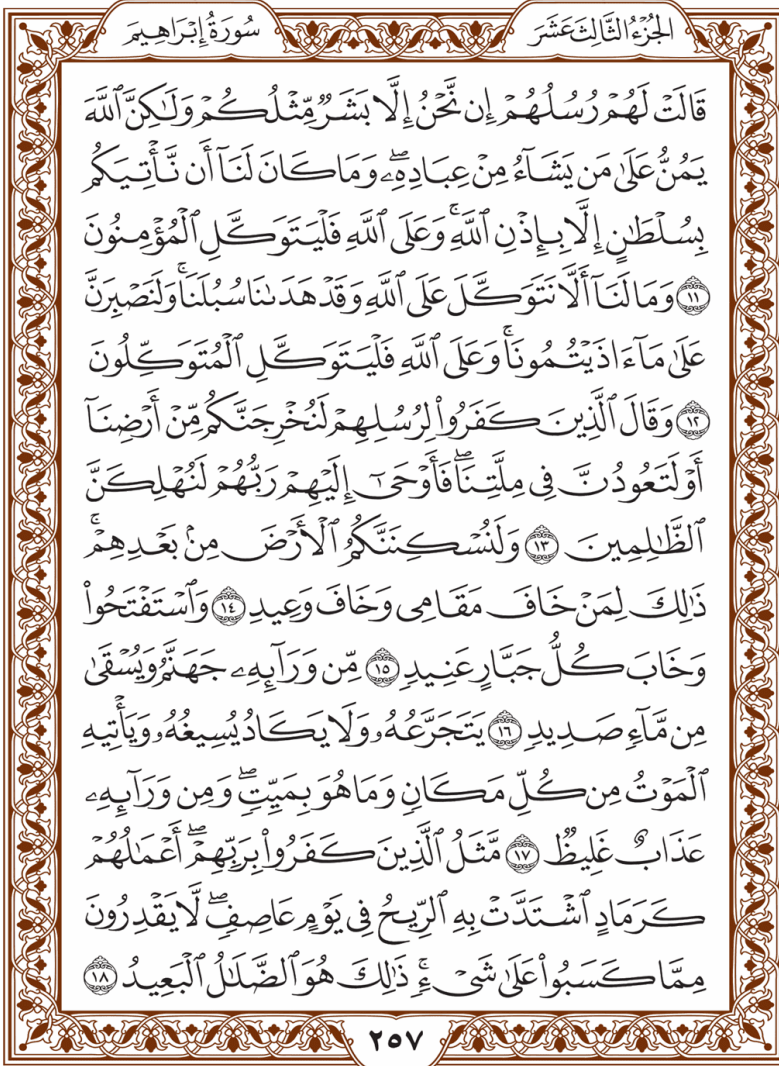 سُورَةُ إِبْرَاهِيمَ
الجُزْءُ الثَّالِثَ عَشَرَ
قَالَتْ لَهُمْ رُسُلُهُمْ إِن نَّحْنُ إِلَّا بَشَرٌ مِّثْلُكُمْ وَلَٰكِنَّ ٱللَّهَ
يَمُنُّ عَلَىٰ مَن يَشَآءُ مِنْ عِبَادِهِۦۖ وَمَا كَانَ لَنَآ أَن نَّأْتِيَكُم
بِسُلْطَٰنٍ إِلَّا بِإِذْنِ ٱللَّهِۚ وَعَلَى ٱللَّهِ فَلْيَتَوَكَّلِ ٱلْمُؤْمِنُونَ
١١ وَمَا لَنَآ أَلَّا نَتَوَكَّلَ عَلَى ٱللَّهِ وَقَدْ هَدَىٰنَا سُبُلَنَاۚ وَلَنَصْبِرَنَّ
عَلَىٰ مَآ ءَاذَيْتُمُونَاۚ وَعَلَى ٱللَّهِ فَلْيَتَوَكَّلِ ٱلْمُتَوَكِّلُونَ
١٢ وَقَالَ ٱلَّذِينَ كَفَرُوا۟ لِرُسُلِهِمْ لَنُخْرِجَنَّكُم مِّنْ أَرْضِنَآ
أَوْ لَتَعُودُنَّ فِى مِلَّتِنَاۖ فَأَوْحَىٰٓ إِلَيْهِمْ رَبُّهُمْ لَنُهْلِكَنَّ
ٱلظَّٰلِمِينَ ١٣ وَلَنُسْكِنَنَّكُمُ ٱلْأَرْضَ مِنۢ بَعْدِهِمْۚ
ذَٰلِكَ لِمَنْ خَافَ مَقَامِى وَخَافَ وَعِيدِ ١٤ وَٱسْتَفْتَحُوا۟
وَخَابَ كُلُّ جَبَّارٍ عَنِيدٍ ١٥ مِّن وَرَآئِهِۦ جَهَنَّمُ وَيُسْقَىٰ
مِن مَّآءٍ صَدِيدٍ ١٦ يَتَجَرَّعُهُۥ وَلَا يَكَادُ يُسِيغُهُۥ وَيَأْتِيهِ
ٱلْمَوْتُ مِن كُلِّ مَكَانٍ وَمَا هُوَ بِمَيِّتٍۖ وَمِن وَرَآئِهِۦ
عَذَابٌ غَلِيظٌ ١٧ مَّثَلُ ٱلَّذِينَ كَفَرُوا۟ بِرَبِّهِمْۖ أَعْمَٰلُهُمْ
كَرَمَادٍ ٱشْتَدَّتْ بِهِ ٱلرِّيحُ فِى يَوْمٍ عَاصِفٍۖ لَّا يَقْدِرُونَ
مِمَّا كَسَبُوا۟ عَلَىٰ شَىْءٍۚ ذَٰلِكَ هُوَ ٱلضَّلَٰلُ ٱلْبَعِيدُ ١٨
٢٥٧